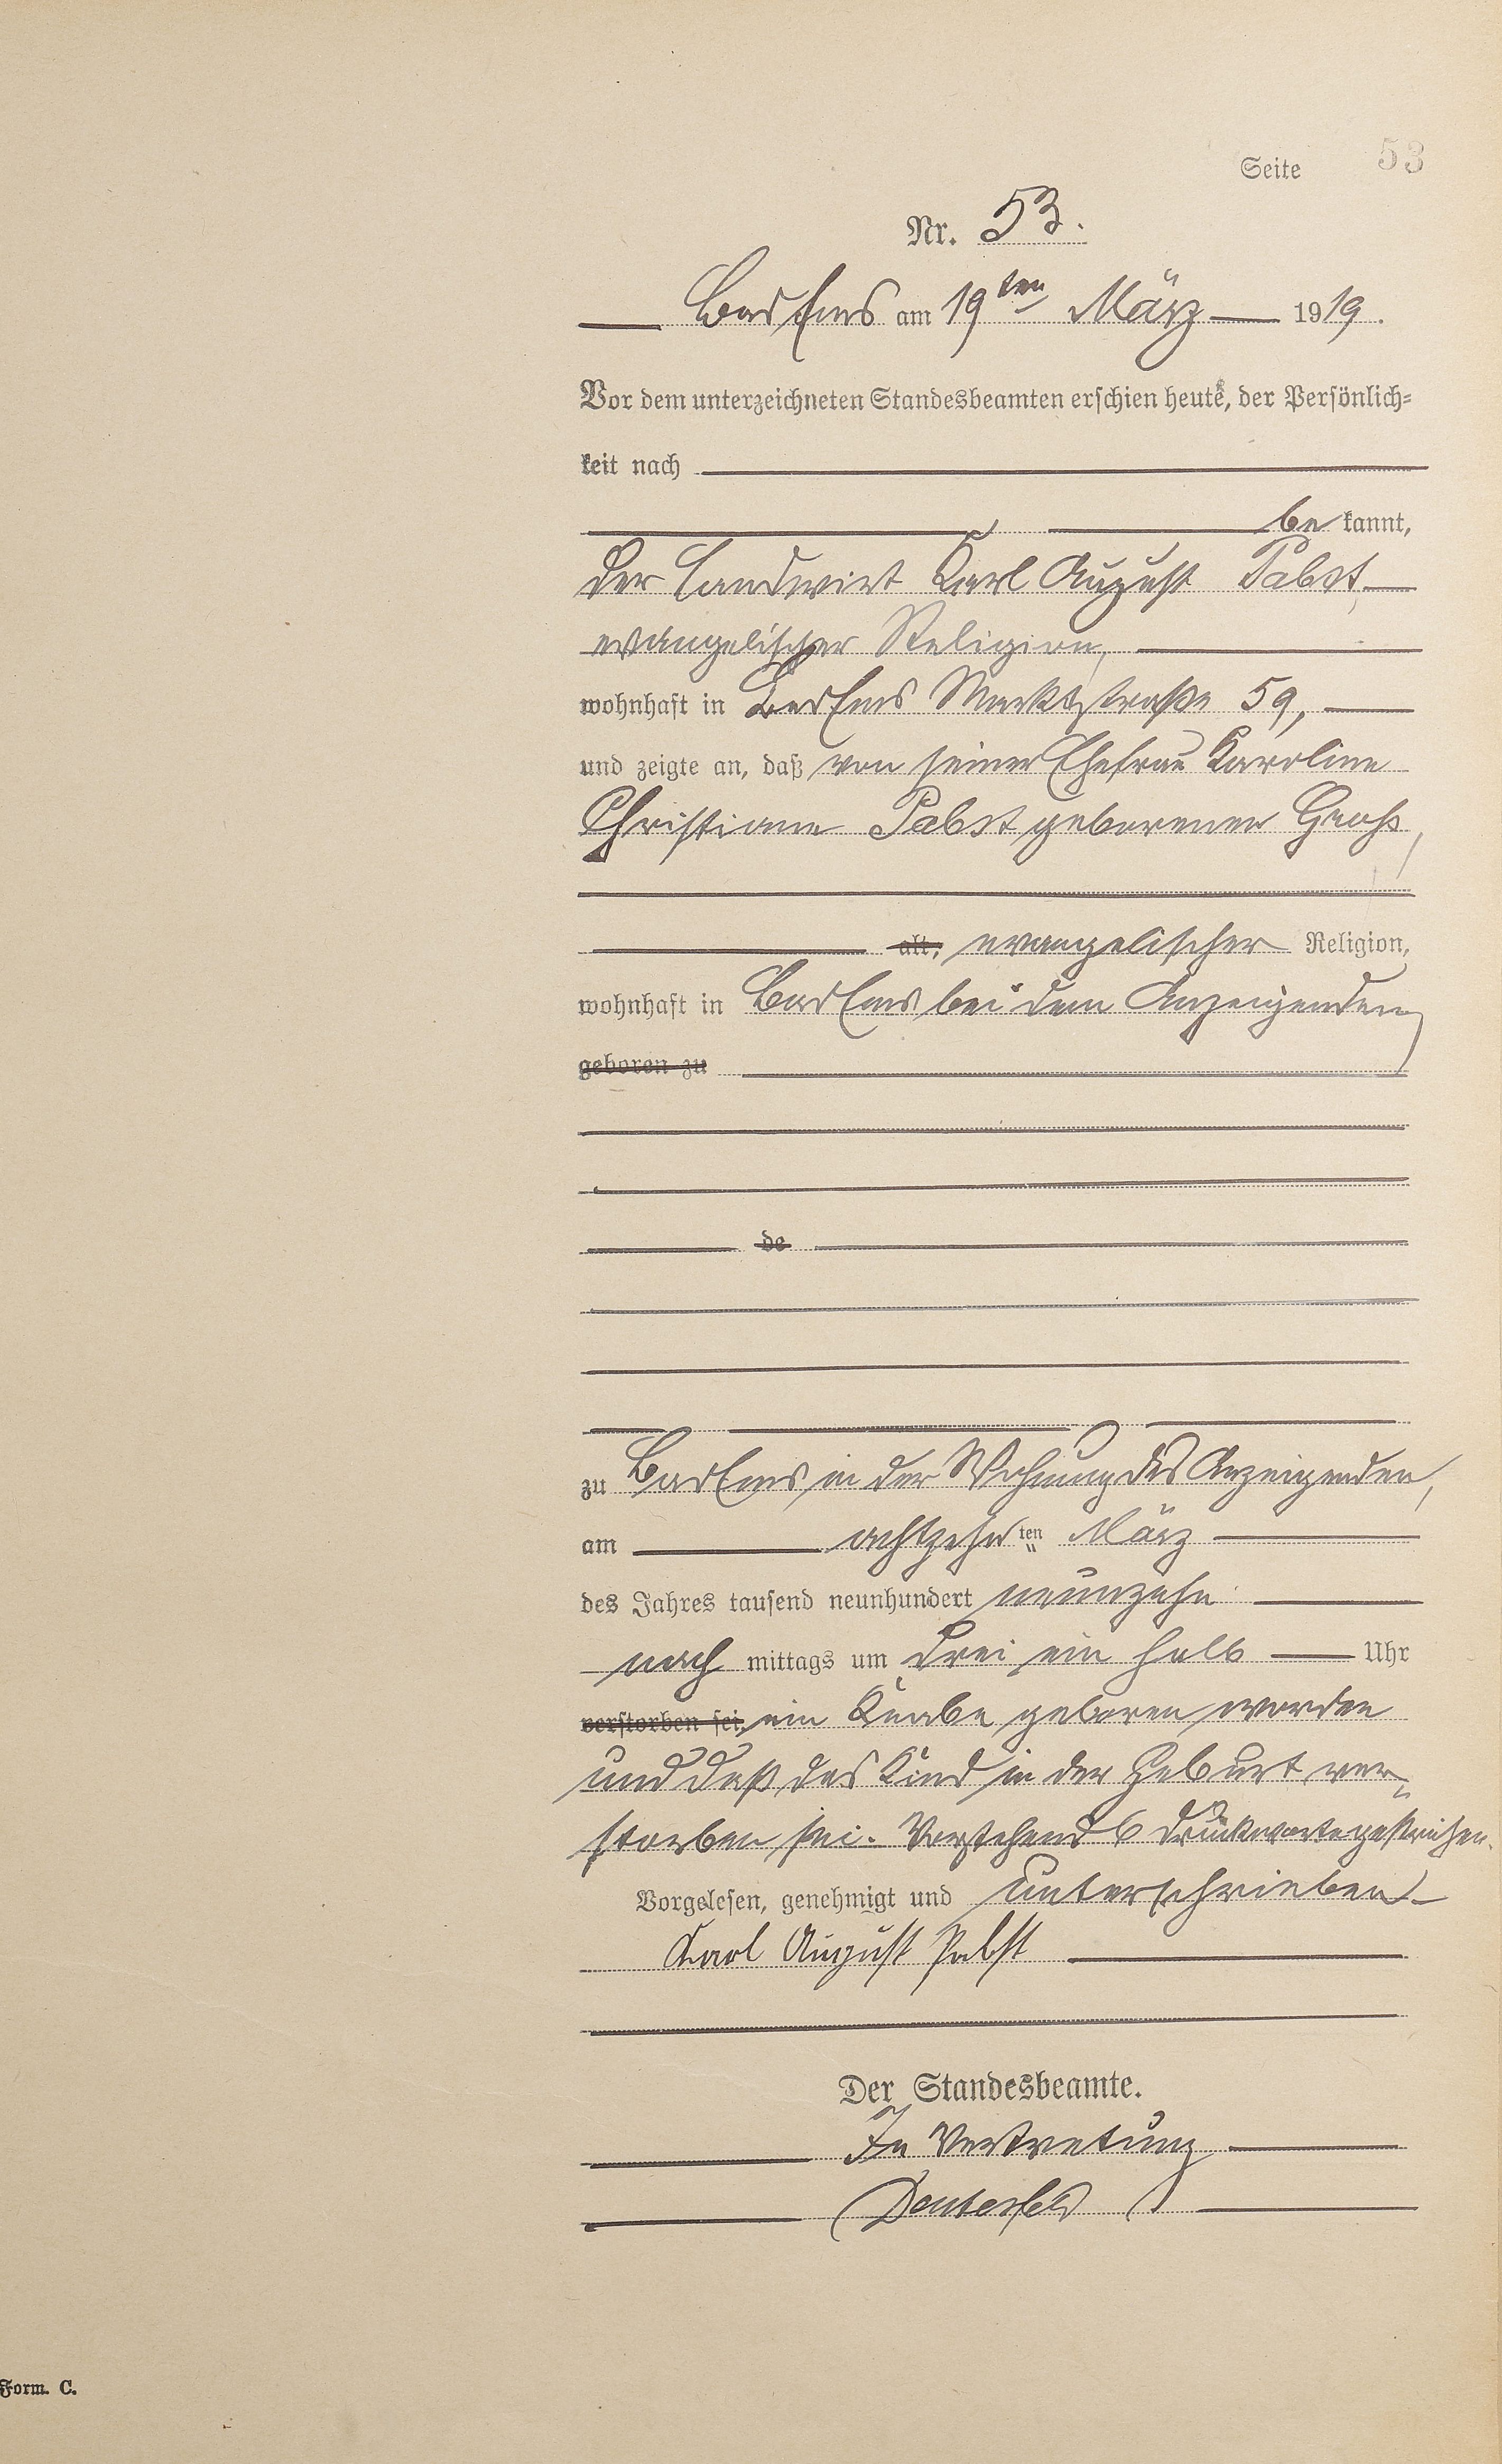 Seite 53
Nr. 53.
Bad Ems am 19ten März 1919.
Vor dem unterzeichneten Standesbeamten erschien heute, der Persönlich=
keit nach
bekannt,
der Landwirt Karl August Pabst,
evangelischer Religion,
wohnhaft in Bad Ems Marktstraße 59,
und zeigte an, daß von seiner Ehefrau Karoline
Christiane Pabst geborenen
alt, evangelischer Religion,
wohnhaft in Bad Ems bei dem Anzeigenden
geboren zu
de
zu Bad Ems in der Wohnung des Anzeigenden,
am achtzehnten März
des Jahres tausend neunhundert neunzehn
nach mittags um drei ein halb Uhr
verstorben sei, ein Knabe geboren worden
und daß das Kind in der Geburt ver„
storben sei. Vorstehend 6 Druckworte gestrichen.
Vorgelesen, genehmigt und unterschrieben
Karl August Pabst
Der Standesbeamte.
In Vertretung
Form. C.